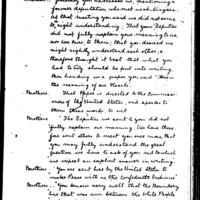 formerly you addressed us, mentioning a
former deputation who met
at that meeting you said we did not come
to a right understanding; That your Deputies
did not fully explain your meaning to us
nor we ours, to them; that you desired we
might rightly understand each other &
therefore thought it best that what you
had to say should be put into writing
then handing us a paper you said "Here's
the meaning of our Hearts.
Brothers. That Paper is directed to the Commissio-
ners of the United States, and speaks to
them these words, to wit
Brothers. "The Deputies we sent to you did not
"fully explain our meaning; We have there
"fore sent others to meet you once more, that
"you may fully understand the great
"question we have to ask of you and to which
"we expect an explicit answer in writing"
Brothers. "You are sent here by the United States to
"make Peace with us the Confederate Indians"
Brothers. "You know very well that the Boundary
"line that was run between the White People